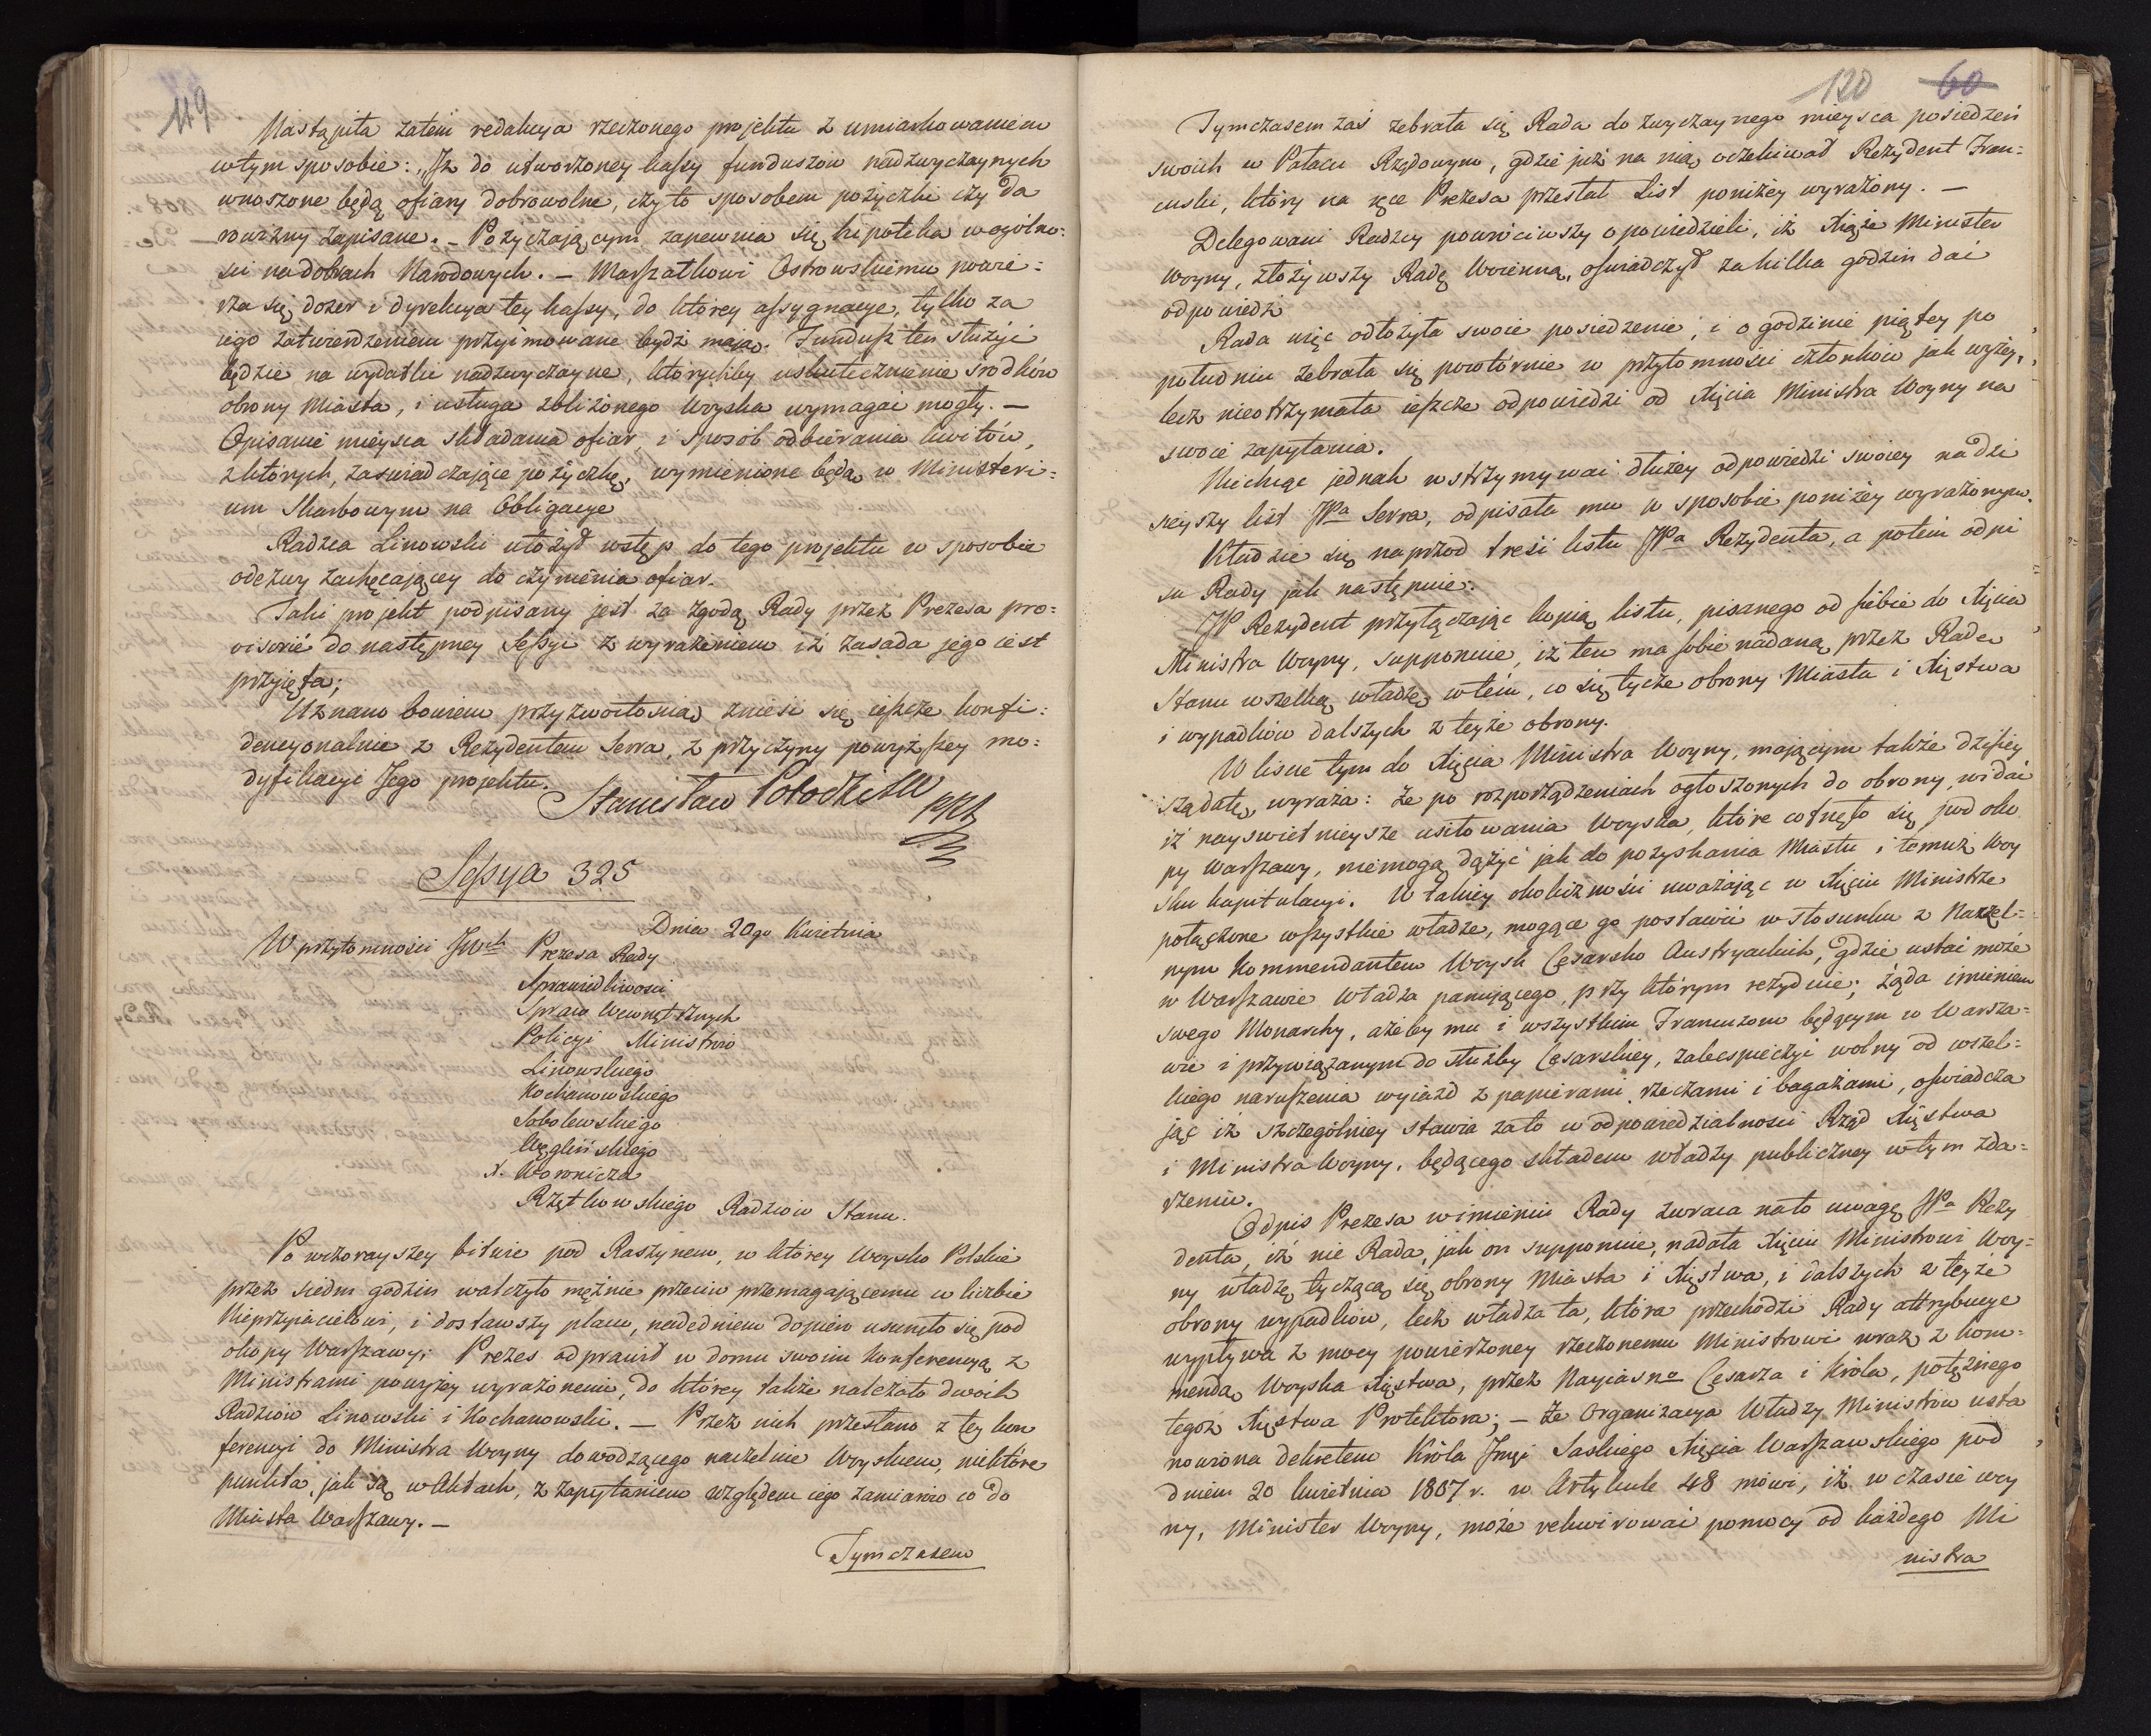 119
Nastąpiła zatem redakcya rzeczonego projektu z umiarkowaniem
w tym sposobie: „Iż do utworzoney kassy funduszów nadzwyczaynych
wnoszone będą ofiary dobrowolne, czyto sposobem pożyczki czy da
rowizny zapisane. — Pożyczającym zapewnia się hipoteka w ogólno=
ści na dobrach Narodowych. — Marszałkowi Ostrowskiemu powie=
rza się dozor i dyrekcya tey kassy, do którey assygnacye, tylko za
iego zatwierdzeniem przyimowane bydź mają. Fundusz ten służyć
będzie na wydatki nadzwyczayne, którychby uskutecznienie srodków
obrony Miasta, i usługa zbliżonego Woyska wymagać mogły. —
Opisanie mieysca składania ofiar, i sposób odbierania kwitów,
z których, zaswiadczające pożyczkę, wymienione będą w Ministeri=
um Skarbowym na Obligacye
Radzca Linowski ułożył wstęp do tego projektu w sposobie
odezwy zachęcającey do czynienia ofiar.
Taki projekt podpisany jest za zgodą Rady przez Prezesa pro=
visorié do następney Sessyi z wyrażeniem iż zasada jego iest
przyięta;
Uznano bowiem przyzwoitością znieść się ieszcze konfi=
dencyonalnie z Rezydentem Serra, z przyczyny powyższey mo=
dyfikacyi Jego projektu.
Stanisław Potocki
Sessya 325
Dnia 20go Kwietnia
W przytomności JWch Prezesa Rady
Sprawiedliwosci
Spraw Wewnętrznych
Policyi Ministrów
Linowskiego
Kochanowskiego
Sobolewskiego
Węglińskiego
X. Woronicza
Rzętkowskiego Radzców Stanu.
Po wczorayszey bitwie pod Raszynem, w którey Woysko Polskie
przez siedm godzin walczyło mężnie przeciw przemagającemu w liczbie
Nieprzyiacielowi, i dostawszy placu, nadedniem dopiero usunęło się pod
okopy Warszawy; Prezes odprawił w domu swoim konferencyą z
Ministrami powyżey wyrażonemi, do którey także należało dwóch
Radzców Linowski i Kochanowski. — Przez nich przesłano z tey kon
ferencyi do Ministra Woyny dowodzącego naczelnie Woyskiem, niektóre
punkta, jak są w Aktach, z zapytaniem względem iego zamiarów co do
Miasta Warszawy. —
Tymczasem
120 60
Tymczasem zaś zebrała się Rada do zwyczaynego mieysca posiedzeń
swoich w Pałacu Rządowym, gdzie już na nią oczekiwał Rezydent Fran=
cuski, który na ręce Prezesa przesłał List poniżey wyrażony. —
Delegowani Radzcy powróciwszy opowiedzieli, iż Xiąże Minister
Woyny, złożywszy Radę Woienną, oswiadczył za kilka godzin dać
odpowiedź
Rada więc odłożyła swoie posiedzenie, i o godzinie piątey po
południu zebrała się powtórnie w przytomności członków jak wyżey,
lecz nieotrzymała ieszcze odpowiedzi od Xięcia Ministra Woyny na
swoie zapytania.
Niechcąc jednak wstrzymywać dłużey odpowiedzi swoiey na dzi
sieyszy list JPa Serra, odpisała mu w sposobie poniżey wyrażonym.
Kładzie się naprzod treść listu JPa Rezydenta, a potem odpi
su Rady jak następnie:
JP Rezydent przyłączając kopią listu, pisanego od siebie do Xięcia
Ministra Woyny, supponuie, iż ten ma sobie nadaną przez Radę
Stanu wszelką władzę w tém, co się tycze obrony Miasta i Xięstwa
i wypadków dalszych z teyże obrony.
W liscie tym do Xięcia Ministra Woyny, mającym także dzisiey
szą datę, wyraża: że po rozporządzeniach ogłoszonych do obrony, widać
iż nayswietnieysze usiłowania Woyska, które cofnęło się pod oko
py Warszawy, niemogą dążyć jak do pozyskania Miastu i temuż Woy
sku kapitulacyi. W takiey okoliczności uważając w Xięciu Ministrze
połączone wszystkie władze, mogące go postawić w stosunku z Naczel=
nym Kommendantem Woysk Cesarsko Austryackich, gdzie ustać może
w Warszawie Władza panującego, przy którym rezyduie; żąda imieniem
swego Monarchy, ażeby mu i wszystkim Francuzom będącym w Warsza=
wie i przywiązanym do służby Cesarskiey, zabespieczyć wolny od wszel=
kiego naruszenia wyiazd z papierami, rzeczami i bagażami, oswiadcza
jąc iż szczególniey stawia zato w odpowiedzialnosci Rząd Xięstwa
i Ministra Woyny, będącego składem władzy publiczney w tym zda=
rzeniu.
Odpis Prezesa w imieniu Rady zwraca nato uwagę JPa Rezy
denta, iż nie Rada, jak on supponuie, nadała Xięciu Ministrowi Woy=
ny władzę tyczącą się obrony Miasta i Xięstwa, i dalszych z teyże
obrony wypadków, lecz władza ta, która przechodzi Rady attrybucye
wypływa z mocy powierzoney rzeczonemu Ministrowi wraz z kom=
mendą Woyska Xięstwa, przez Nayiasno Cesarza i Króla, potężnego
tegoż Xięstwa Protektora; — że Organizacya Władzy Ministrów usta
nowiona dekretem Króla Jmci Saskiego Xięcia Warszawskiego pod
dniem 20 kwietnia 1807 r. w Artykule 48 mówi, iż w czasie woy
ny, Minister Woyny, może rekwirować pomocy od każdego Mi
nistra